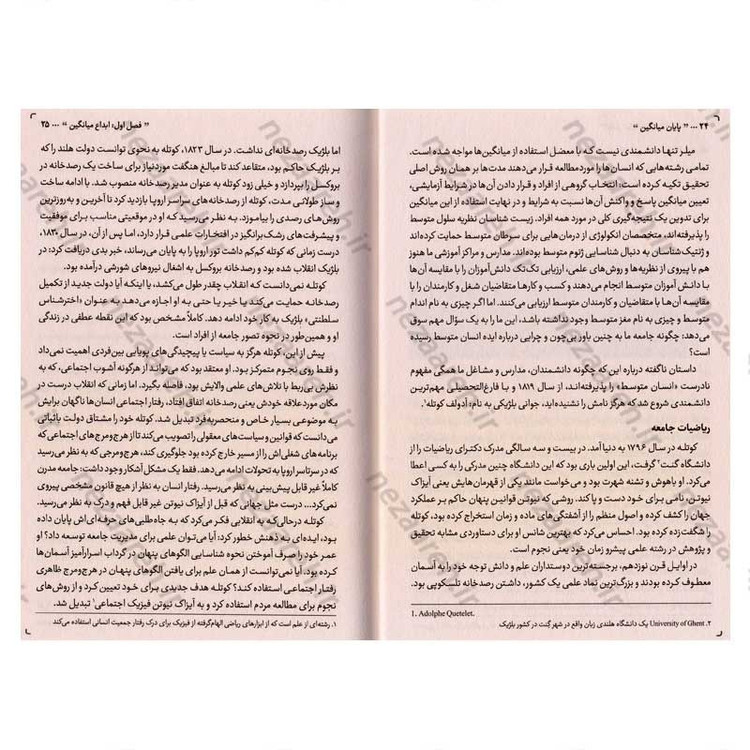 ۲۴ ... " پایان میانگین "
میلر تنها دانشمندی نیست که با معضل استفاده از میانگین‌ها مواجه شده است.
تمامی رشته‌هایی که انسان‌ها را مورد مطالعه قرار می‌دهند مدت‌ها بر همان روش اصلی
تحقیق تکیه کرده است: انتخاب گروهی از افراد و قرار دادن آن‌ها در شرایط آزمایشی،
تعیین میانگین پاسخ و واکنش آن‌ها نسبت به شرایط و در نهایت استفاده از این میانگین
برای تدوین یک نتیجه‌گیری کلی در مورد همه افراد. زیست شناسان نظریه سلول متوسط
را پذیرفته‌اند، متخصصان انکولوژی از درمان‌هایی برای سرطان متوسط حمایت کرده‌اند
و ژنتیک‌شناسان به دنبال شناسایی ژنوم متوسط بوده‌اند. مدارس و مراکز آموزشی ما هنوز
هم با پیروی از نظریه‌ها و روش‌های علمی، ارزیابی تک‌تک دانش‌آموزان را با مقایسه آن‌ها
با دانش آموزان متوسط انجام می‌دهند و کسب و کارها متقاضیان شغل و کارمندان را با
مقایسه آن‌ها با متقاضیان و کارمندان متوسط ارزیابی می‌کنند. اما اگر چیزی به نام اندام
متوسط و چیزی به نام مغز متوسط وجود نداشته باشد، این ما را به یک سؤال مهم سوق
می‌دهد: چگونه جامعه ما به چنین باور بی‌چون و چرایی درباره ایده انسان متوسط رسیده
است؟
داستان ناگفته درباره این که چگونه دانشمندان، مدارس و مشاغل ما همگی مفهوم
نادرست «انسان متوسط» را پذیرفته‌اند، از سال ۱۸۱۹ و با فارغ‌التحصیلی مهم‌ترین
دانشمندی شروع شد که هرگز نامش را نشنیده‌اید، جوانی بلژیکی به نام: آدولف کوتله۱.
ریاضیات جامعه
کوتله در سال ۱۷۹۶ به دنیا آمد. در بیست و سه سالگی مدرک دکترای ریاضیات را از
دانشگاه گنت۲ گرفت، این اولین باری بود که این دانشگاه چنین مدرکی را به کسی اعطا
می‌کرد. او باهوش و تشنه شهرت بود و می‌خواست مانند یکی از قهرمان‌هایش یعنی آیزاک
نیوتن، نامی برای خود دست و پا کند. روشی که نیوتن قوانین پنهان حاکم بر عملکرد
جهان را کشف کرده و اصول منظم را از آشفتگی‌های ماده و زمان استخراج کرده بود، کوتله
را شگفت‌زده کرده بود. احساس می‌کرد که بهترین شانس او برای دستاوردی مشابه تحقیق
و پژوهش در رشته علمی پیشرو زمان خود یعنی نجوم است.
در اوایل قرن نوزدهم، برجسته‌ترین دوستداران علم و دانش توجه خود را به آسمان
معطوف کرده بودند و بزرگ‌ترین نماد علمی یک کشور، داشتن رصدخانه تلسکوپی بود.
1. Adolphe Quetelet.
۲. University of Ghent یک دانشگاه هلندی زبان واقع در شهر گنت در کشور بلژیک
" فصل اول: ابداع میانگین " ... ۲۵
اما بلژیک رصدخانه‌ای نداشت. در سال ۱۸۲۳، کوتله به نحوی توانست دولت هلند را که
بر بلژیک حاکم بود، متقاعد کند تا مبالغ هنگفت موردنیاز برای ساخت یک رصدخانه در
بروکسل را بپردازد و خیلی زود کوتله به عنوان مدیر رصدخانه منصوب شد. با ادامه ساخت
و ساز طولانی مدت، کوتله از رصدخانه‌های سراسر اروپا بازدید کرد تا آخرین و به‌روزترین
روش‌های رصدی را بیاموزد. به نظر می‌رسید که او در موقعیتی مناسب برای موفقیت
و پیشرفت‌های رشک‌برانگیز در افتخارات علمی قرار دارد، اما پس از آن، در سال ۱۸۳۰،
درست زمانی که کوتله کم‌کم داشت تور اروپا را به پایان می‌رساند، خبر بدی دریافت کرد: در
بلژیک انقلاب شده بود و رصدخانه بروکسل به اشغال نیروهای شورشی درآمده بود.
کوتله نمی‌دانست که انقلاب چقدر طول می‌کشد، یا اینکه آیا دولت جدید از تکمیل
رصدخانه حمایت می‌کند یا خیر یا حتی به او اجازه می‌دهد به عنوان «اخترشناس
سلطنتی» بلژیک به کار خود ادامه دهد. کاملاً مشخص بود که این نقطه عطفی در زندگی
او و همین‌طور در نحوه تصور جامعه از افراد است.
پیش از این، کوتله هرگز به سیاست یا پیچیدگی‌های پویایی بین‌فردی اهمیت نمی‌داد
و فقط روی نجوم متمرکز بود. او معتقد بود که می‌تواند از هرگونه آشوب اجتماعی، که به
نظرش بی‌ربط با تلاش‌های علمی والایش بود، فاصله بگیرد. اما زمانی که انقلاب درست در
مکان مورد علاقه خودش یعنی رصدخانه اتفاق افتاد، رفتار اجتماعی انسان‌ها ناگهان برایش
به موضوعی بسیار خاص و منحصربه‌فرد تبدیل شد. کوتله خود را مشتاق دولت باثباتی
می‌دانست که قوانین و سیاست‌های معقولی را تصویب می‌کند تا از هرج‌ومرج‌های اجتماعی که
برنامه‌های شغلی‌اش را از مسیر خارج کرده بود جلوگیری کند، هرج‌ومرجی که به نظر می‌رسید
که در سرتاسر اروپا به تحولات ادامه می‌دهد. فقط یک مشکل آشکار وجود داشت: جامعه مدرن
کاملاً غیر قابل پیش‌بینی به نظر می‌رسید. رفتار انسان به نظر از هیچ قانون مشخصی پیروی
نمی‌کرد... درست مثل جهانی که قبل از آیزاک نیوتن غیر قابل فهم و درک به نظر می‌رسید.
کوتله درحالی‌که به انقلابی فکر می‌کرد که به جاه‌طلبی‌های حرفه‌ای‌اش پایان داده
بود، ایده‌ای به ذهنش خطور کرد: آیا می‌توان علمی برای مدیریت جامعه توسعه داد؟ او
عمر خود را صرف آموختن نحوه شناسایی الگوهای پنهان در گرداب اسرارآمیز آسمان‌ها
کرده بود. آیا نمی‌توانست از همان علم برای یافتن الگوهای پنهان در هرج‌ومرج ظاهری
رفتار اجتماعی استفاده کند؟ کوتله هدف جدیدی برای خود تعیین کرد و از روش‌های
نجوم برای مطالعه مردم استفاده کرد و به آیزاک نیوتن فیزیک اجتماعی۱ تبدیل شد.
۱. رشته‌ای از علم است که از ابزارهای ریاضی الهام‌گرفته از فیزیک برای درک رفتار جمعیت انسانی استفاده می‌کند